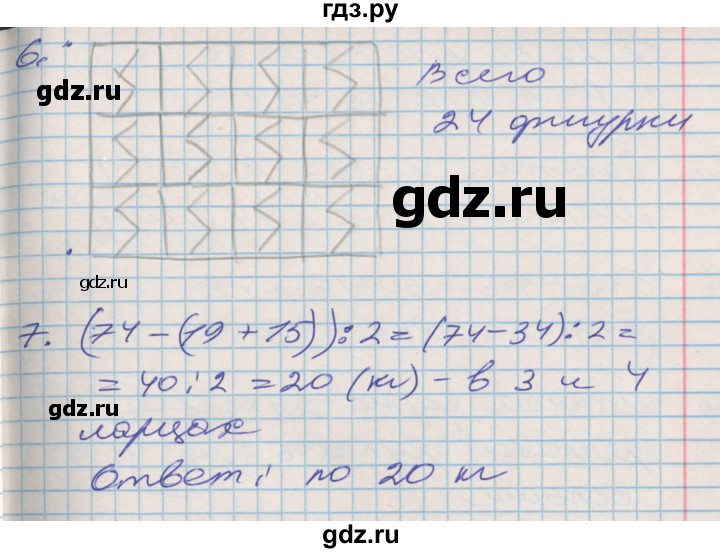 гдз.ру
6.
gdz.ru
Всего
24 фигурки
gdz.ru
gdz.ru
7. (74-(19+15)):2=(74-34):2=
=40:2=20 (кг) - в 3 и 4
gdz.ru
ларцах
Ответ: по 20 кг
gdz.ru
gdz.ru